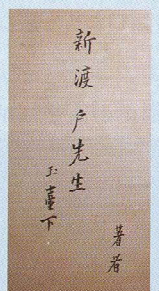 新渡戸先生
玉臺下
著者